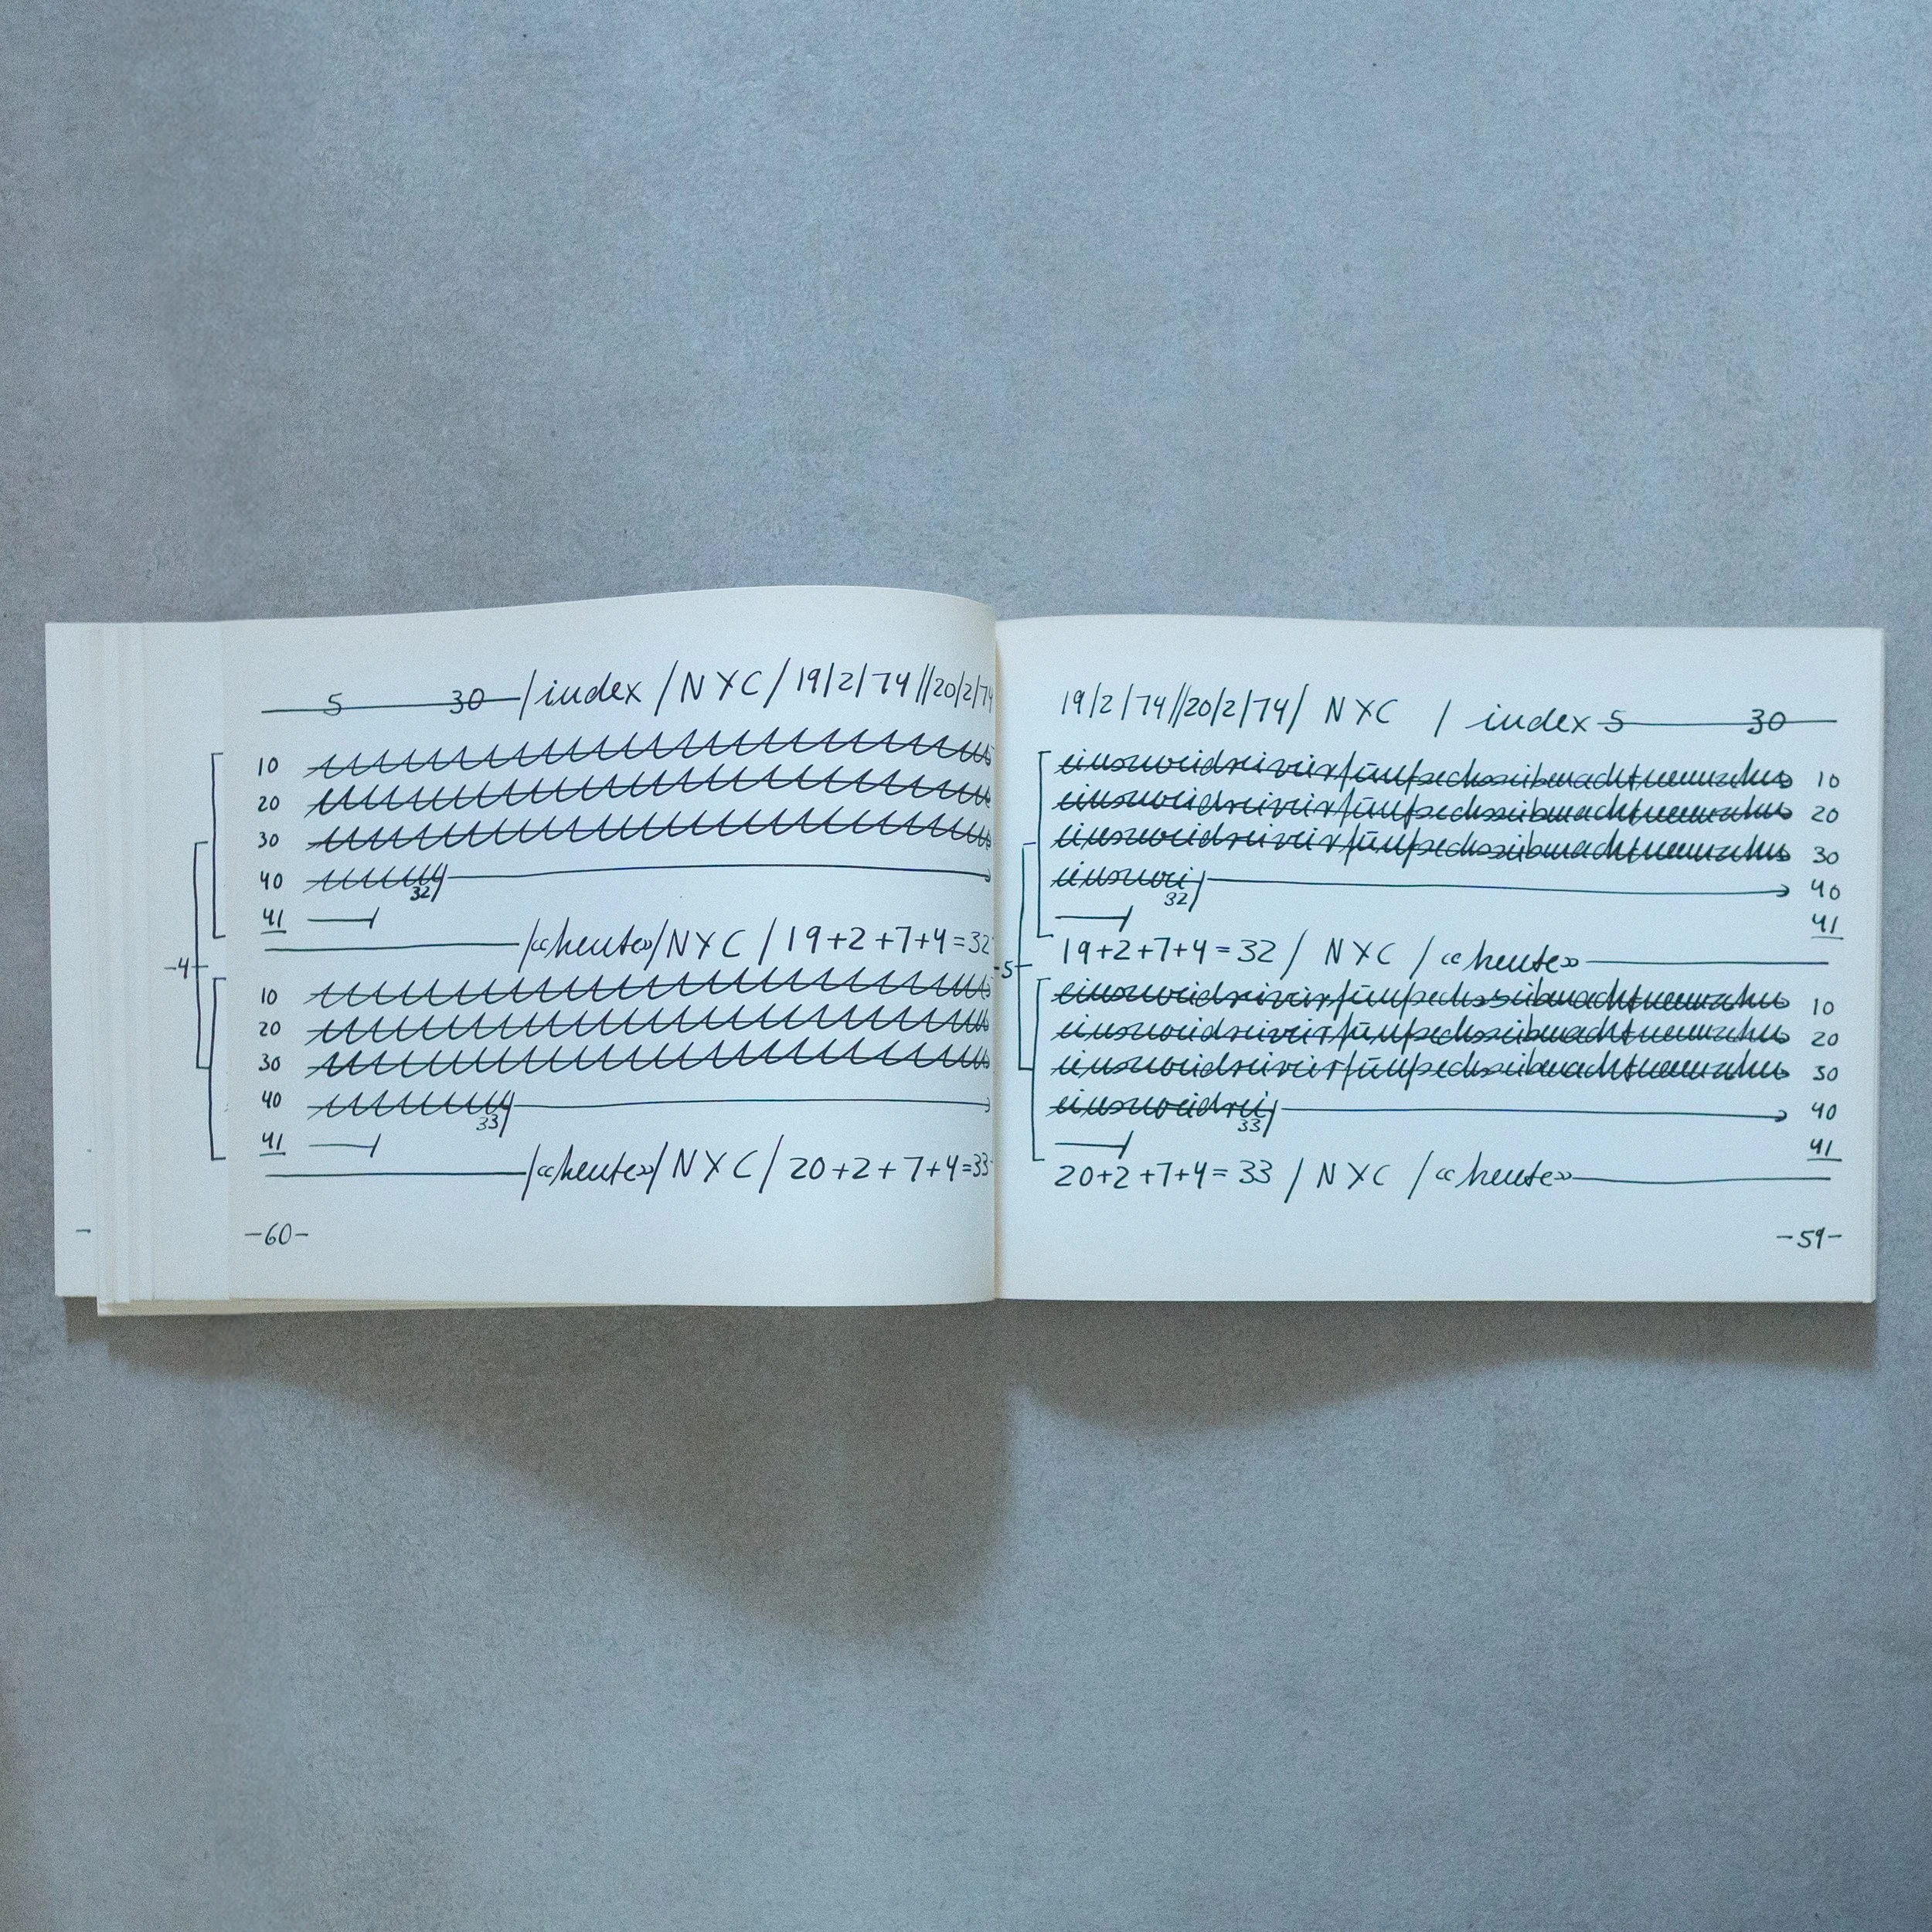 5 30 /index / NYC / 19/2/74 // 20/2/74
10
20
30
40 32
41
/«heute»/ NYC / 19+2+7+4=32
-4-
10
20
30
40 33
41
/«heute»/ NYC / 20+2+7+4=33
-60-
19/2/74//20/2/74/ NYC / index 5 30
einszweidreivierfünfsechssiebenachtneunzehn 10
einszweidreivierfünfsechssiebenachtneunzehn 20
einszweidreivierfünfsechssiebenachtneunzehn 30
einszwei 32 40
41
19+2+7+4=32 / NYC / «heute»
-5-
einszweidreivierfünfsechssiebenachtneunzehn 10
einszweidreivierfünfsechssiebenachtneunzehn 20
einszweidreivierfünfsechssiebenachtneunzehn 30
einszweidrei 33 40
41
20+2+7+4=33 / NYC / «heute»
-59-